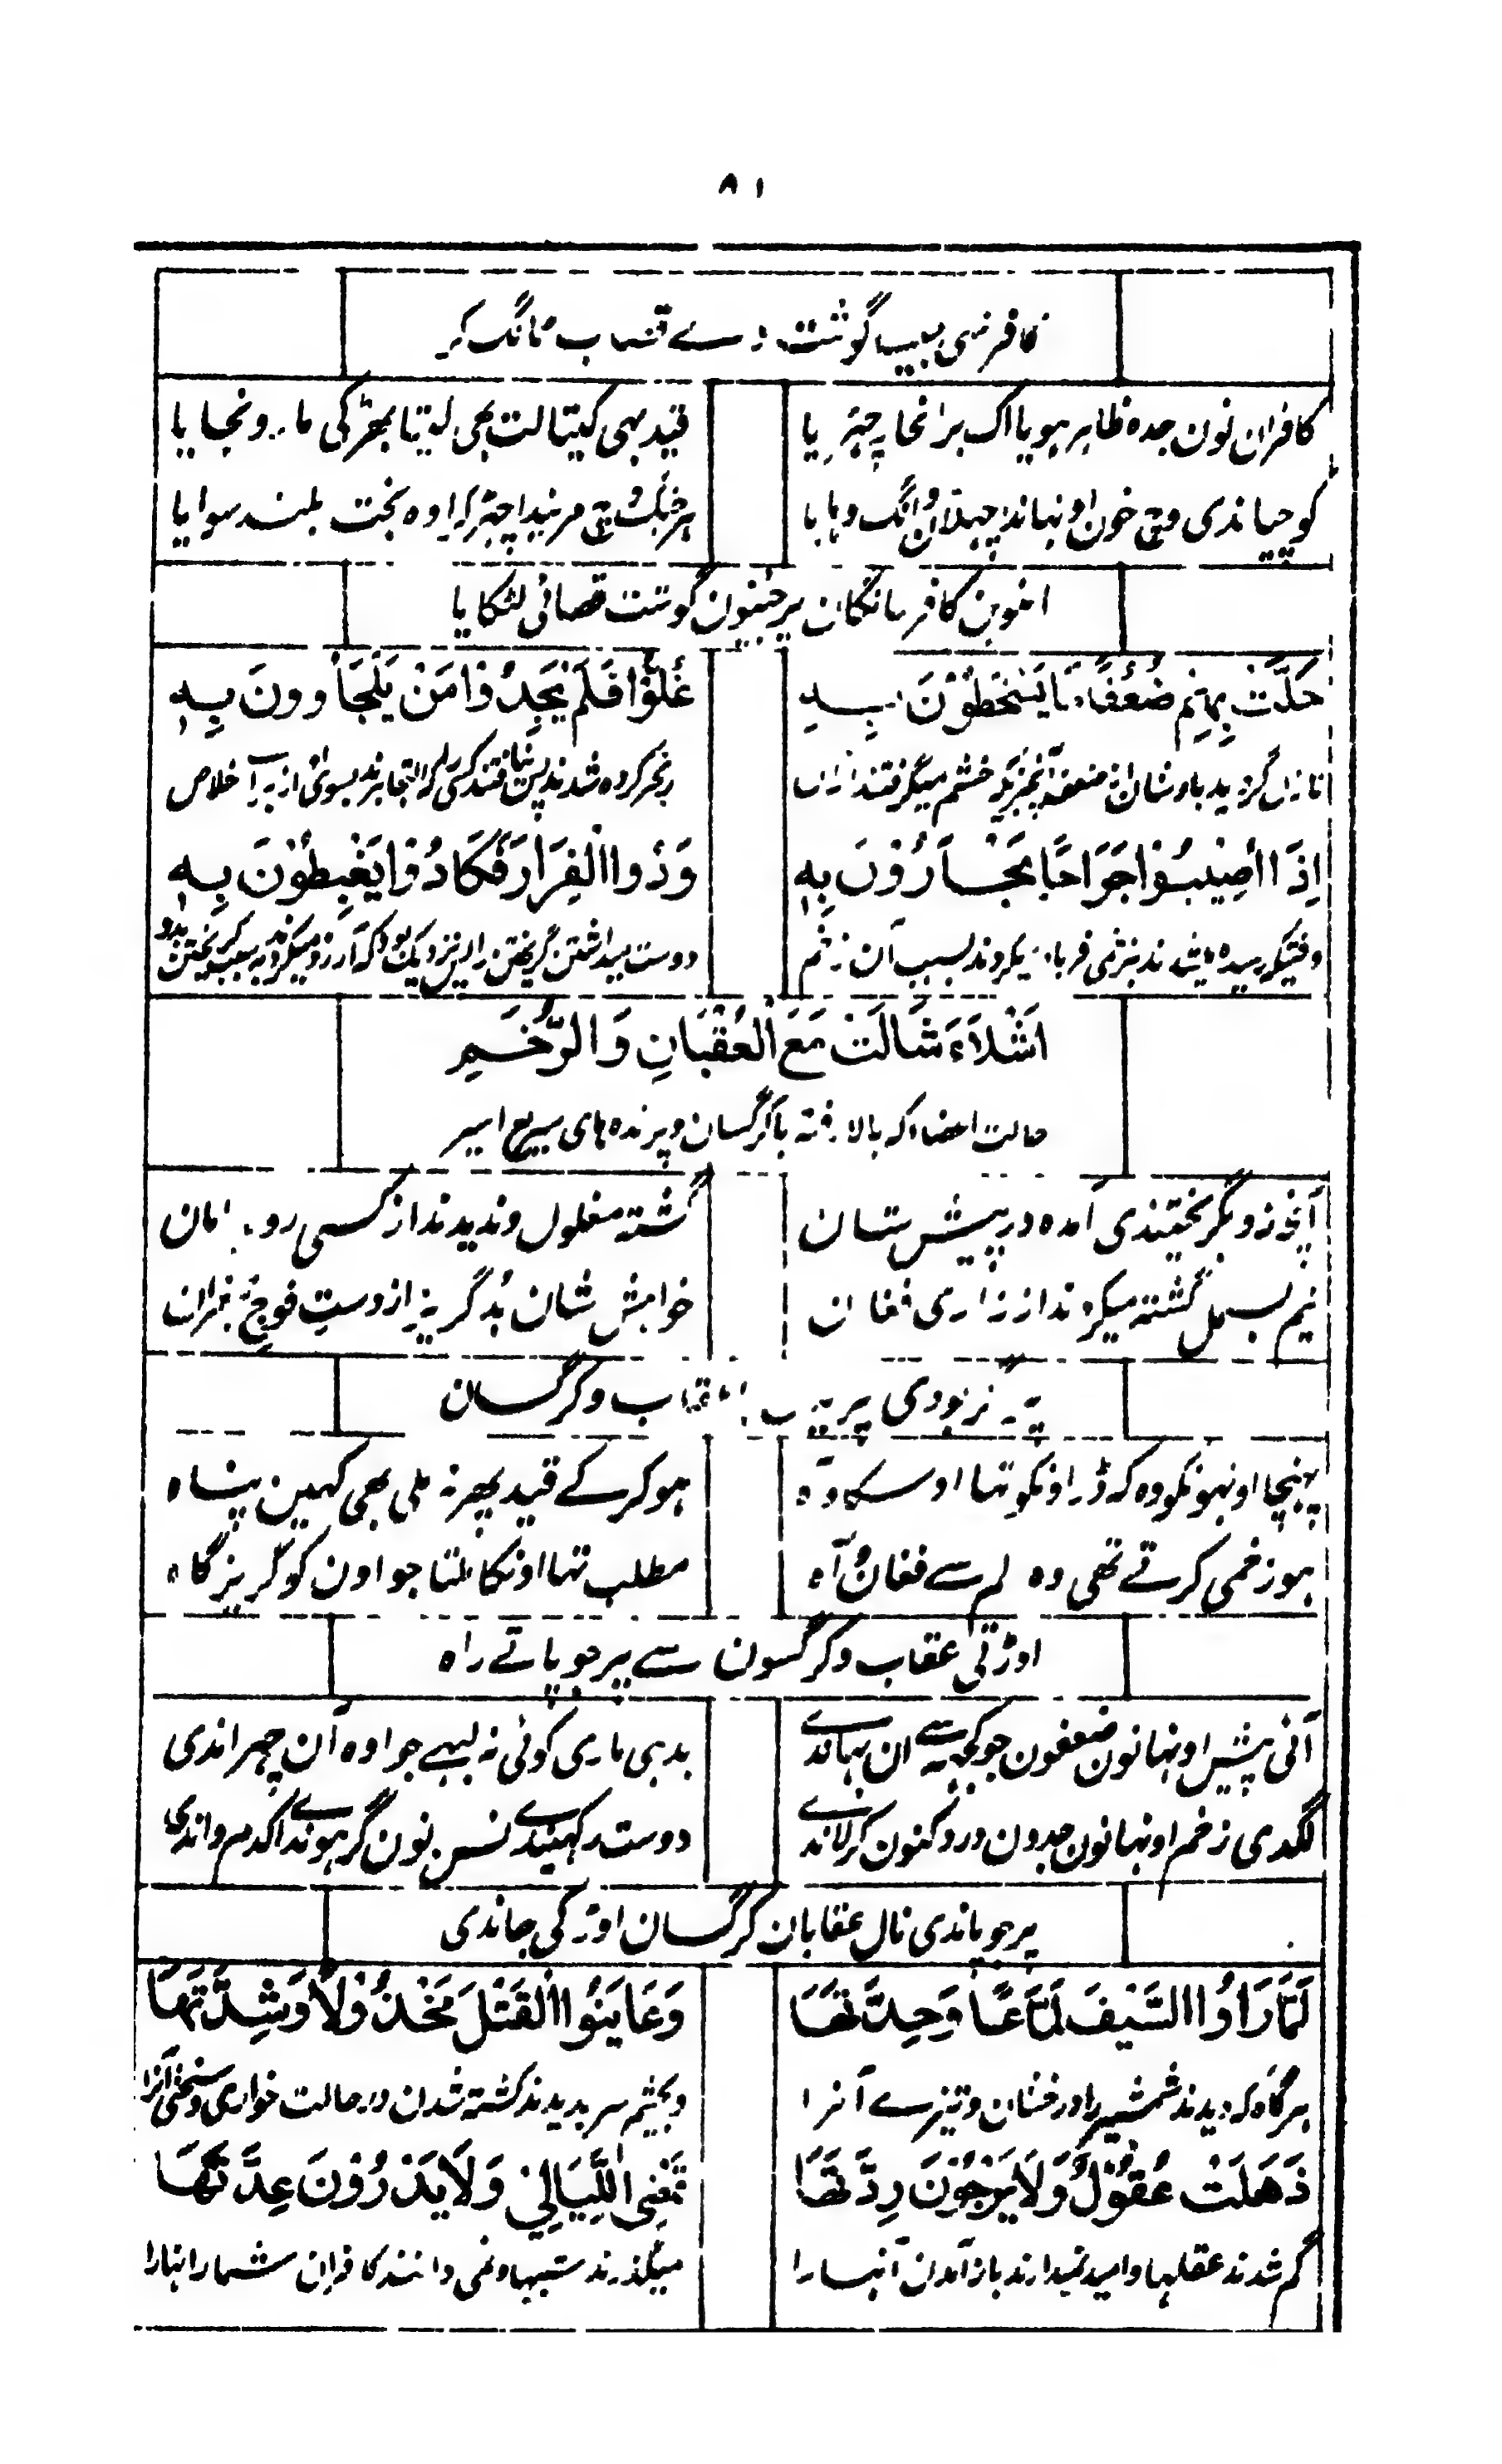 ۸۱
کافر نہی بیبیا گوشت دے قصاب ٹانگ کر
کافران نون جدہ ظاہر ہویا اک برانحا پہ چہڑیا
قید بہی کیتا لت بھی لیتا پھڑ کی مارونجایا
کوچیاندی وچ خون اونہاندا چہلان وانگ وہایا
ہر جنگ وچ مرنیدا چہڑ کر اوہ بخت بلند سوایا
اخوین کافر سانگان پر جنیون گوشت قصائی لٹکایا
حَلَّتْ بِهِمْ ضُعُفًا مَا يَسْخَطُوْنَ بِهٖ
غُلُّوْا فَلَمْ يَجِدُوْا مَنْ يَلْجَأُوونَ بِهٖ
نازل گردید باوشان از ضعف آنچیزیکہ خشم میگرفتند ازان
زنجیر کردہ شدند پس نیافتند کسی را کہ التجا برند بسوی از برآ خلاص
اِذَا اُصِيْبُوْا جَرَاحًا يَجْأَرُوْنَ بِهٖ
وَدُّوا الْفِرَارَ فَكَادُوْا يَغْبِطُوْنَ بِهٖ
وقتیکہ رسیدہ میشدند بزخمی فریاد میکردند بسبب آن زخم
دوست میداشتن گریختن را پس نزدیک بود کہ آرزو میکردند بسبب گریختن بدو
اَشْلَاءَ شَالَتْ مَعَ الْعُقْبَانِ وَالرَّخَمِ
حالت اعضاء کہ بالا رفتہ با کرگسان و پرندہ ہای سریع السیر
آنچہ زو بگریختندی آمدہ در پیش شان
گشتہ مغلول و ندیدند از کسی روے امان
نیم بسمل گشتہ میکردند از زاری فغان
خواہش شان بُد گریز از دست فوج
عقاب و کرگسان
پہنچا اونہونکو وہ کہ ڈر اونکو تہا اوسکا وہ
ہو کر کے قید پھر نہ ملی بھی کہین پناہ
ہو زخمی کرتے تھی وہ الم سے فغان و آہ
مطلب تہا اونکا ملتا جو اون کو گریزگاہ
اوڑتی عقاب و کرگسون سے پر جو پاتے راہ
آئی پیش اونہانون ضعفون جو کجہہ سے ان بہاندے
بدہی ماری کوئی نہ لبہے جو اوہ آن چہراندی
لگدی زخم اونہانون جدون درد کنون کرلاندے
دوست رکہیندے نس نون گر ہوندا کدم واندی
پر جو پاندی نال عقابان کرگسان اوڑ کی جاندی
لَمَّا رَاَوُا السَّيْفَ لَمَّاعًا وَحِدَّتَهَا
وَعَايَنُوا الْقَتْلَ مَخْذُوْلًا وَشِدَّتَهَا
ہرگاہ کہ دیدند شمشیر را درخشان و تیزے آنرا
و بچشم سر بدیدند کشتہ شدن در حالت خواری و سختی آنرا
ذَهَلَتْ عُقُوْلٌ وَلَا يَرْجُوْنَ رِدَّتَهَا
تَمْضِى اللَّيَالِيْ وَلَا يَدْرُوْنَ عِدَّتَهَا
گم شدند عقلہا و امید نمیدارند باز آمدن آنہارا
میگذرند شبہا و نمی دانند کافران شمار انہارا